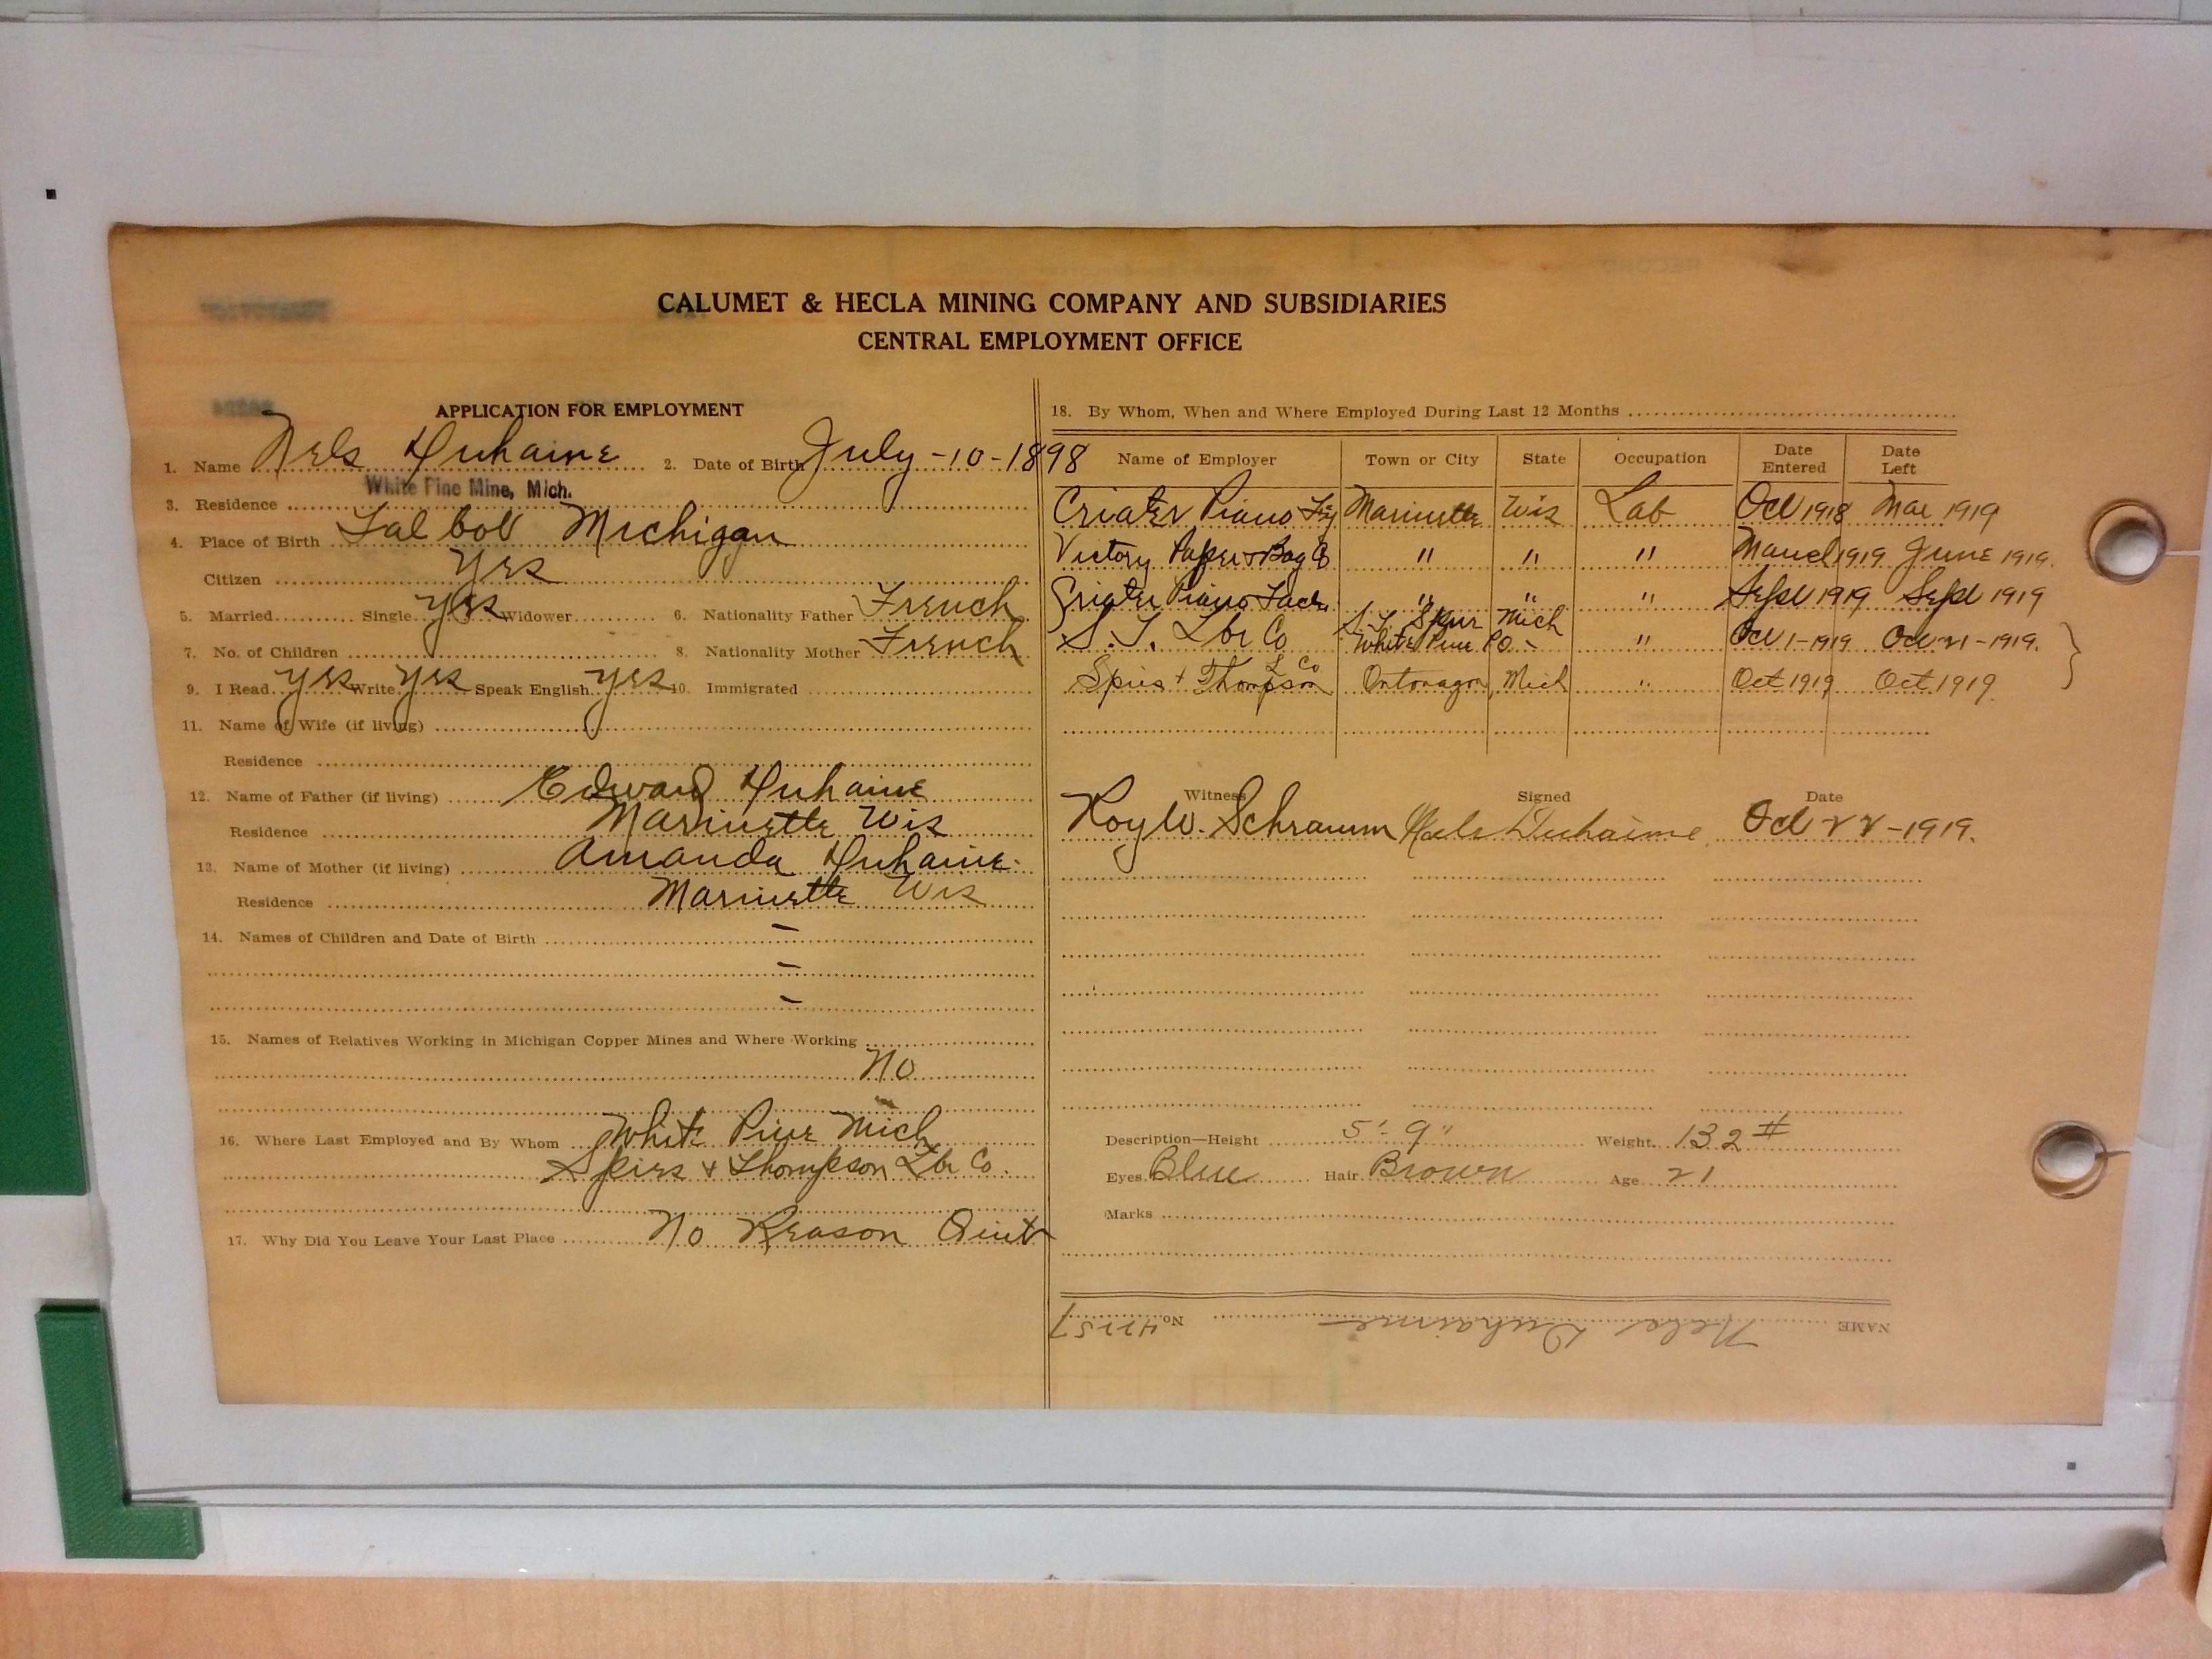 CALUMET & HECLA MINING COMPANY AND SUBSIDIARIES
CENTRAL EMPLOYMENT OFFICE
APPLICATION FOR EMPLOYMENT
1. Name Nels Duhaine 2. Date of Birth July-10-1898
3. Residence White Pine Mine, Mich.
4. Place of Birth Talbot Michigan
Citizen Yes
5. Married Single Yes Widower 6. Nationality Father French
7. No. of Children 8. Nationality Mother French
9. I Read Yes Write Yes Speak English Yes 10. Immigrated
11. Name of Wife (if living)
Residence
12. Name of Father (if living) Edward Duhaine
Residence Marinette Wis
13. Name of Mother (if living) Amanda Duhaine
Residence Marinette Wis
14. Names of Children and Date of Birth –
–
–
15. Names of Relatives Working in Michigan Copper Mines and Where Working
No
16. Where Last Employed and By Whom White Pine Mich
Spies + Thompson Lbr Co.
17. Why Did You Leave Your Last Place No Reason Quit
18. By Whom, When and Where Employed During Last 12 Months
Name of Employer Town or City State Occupation Date Entered Date Left
Piano Marinette Wis Lab Oct 1918 Mar 1919
Victory Paper + Bag Co " " " March 1919 June 1919.
Piano " " " Sept 1919 Sept 1919
S.T. Lbr Co S.T. Spur Mich
White Pine P.O. " Oct 1-1919 Oct 21-1919.
Spies + Thompson L Co Ontonagon Mich " Oct 1919 Oct 1919.
Witness Signed Date
Roy W. Schramm Nels Duhaime Oct 22-1919.
Description—Height 5'-9" Weight 132 #
Eyes Blue Hair Brown Age 21
Marks
NAME Nels Duhaime No. 42157